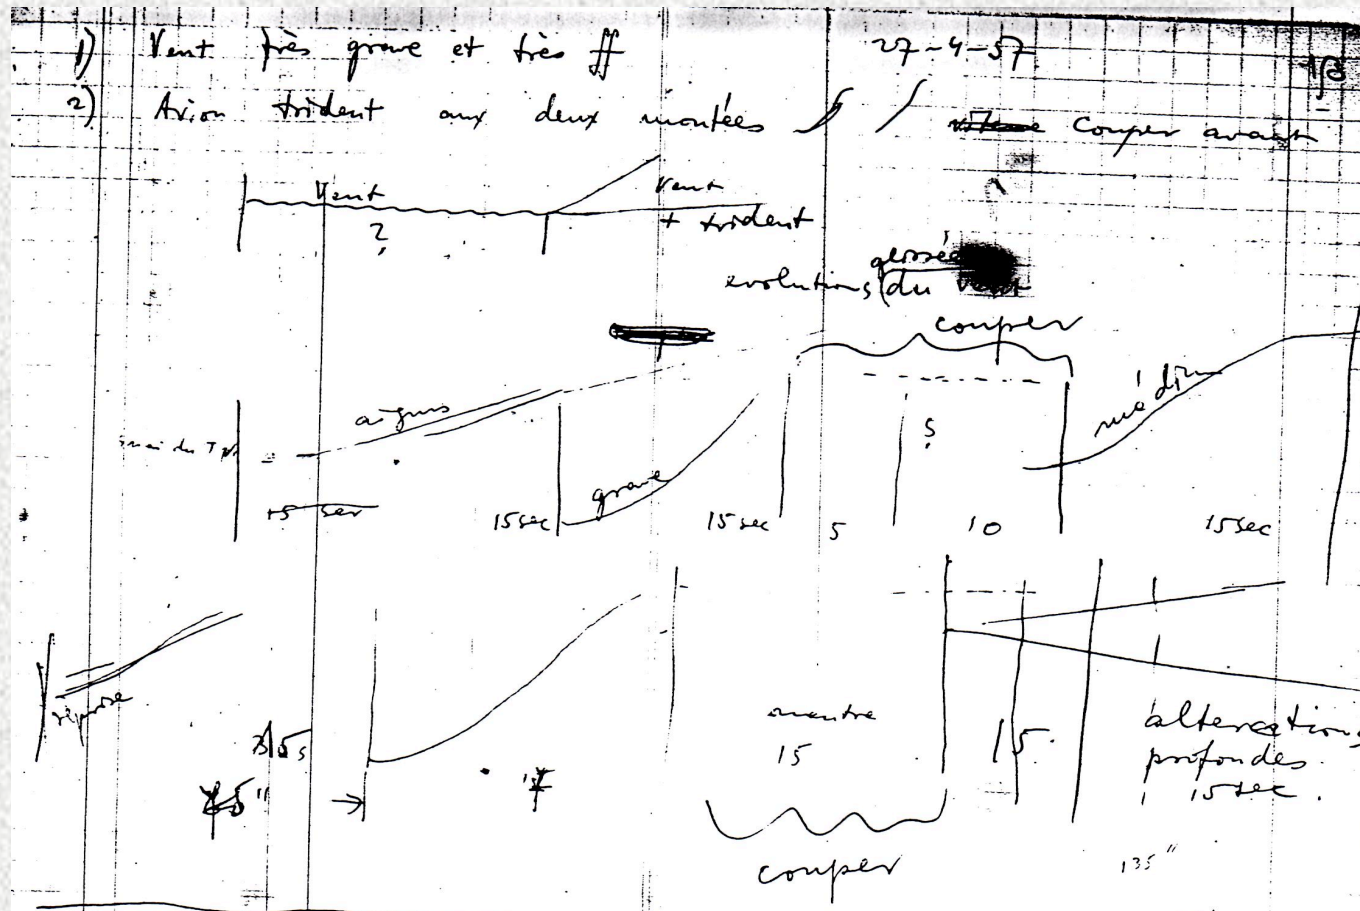 1) Vent très grave et très ff 27-4-57
2) Avion trident aux deux montées Couper avant
Vent
?
Vent
+ trident
evolutions du vent
couper
aigus
médium
grave
15 sec
15 sec
15 sec
5
10
15 sec
reprise
15
15
altercations
profondes
15 sec.
couper
135"